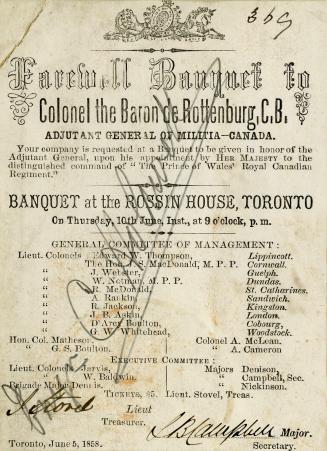 369
Farewell Banquet to
Colonel the Baron de Rottenburg, C.B.
ADJUTANT GENERAL OF MILITIA—CANADA.
Your company is requested at a Banquet to be given in honor of the
Adjutant General, upon his appointment by HER MAJESTY to the
distinguished command of "The Prince of Wales' Royal Canadian
Regiment."
BANQUET at the ROSSIN HOUSE, TORONTO
On Thursday, 10th June, Inst., at 9 o'clock, p. m.
GENERAL COMMITTEE OF MANAGEMENT:
Lieut. Colonels Edward W. Thompson, Lippincott.
" The Hon. J. S. MacDonald, M. P. P. Cornwall.
" J. Webster, Guelph.
" W. Notman, M. P. P. Dundas.
" R. McDonald, St. Catharines.
" A. Rankin, Sandwich.
" R. Jackson, Kingston.
" J. B. Askin, London.
" D'Arcy Boulton, Cobourg,
" G. W. Whitehead, Woodstock.
Hon. Col. Matheson, Colonel A. McLean.
" G. S. Boulton. " A. Cameron
EXECUTIVE COMMITTEE:
Lieut. Colonels Jarvis, Majors Denison,
" W. Baldwin. " Campbell, Sec.
Brigade Major Dennis. " Nickinson.
TICKETS, $5. Lieut. Stovel, Treas.
J Stovel Lieut
Treasurer.
Campbell Major.
Toronto, June 5, 1858. Secretary.